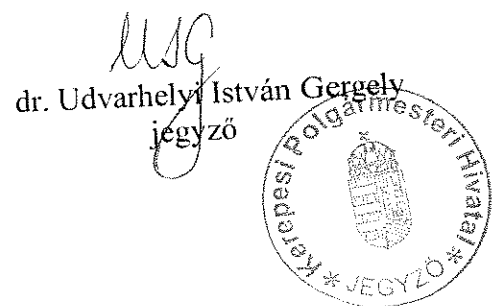 dr. Udvarhelyi István Gergely
jegyző
Kerepesi Polgármesteri Hivatal * JEGYZŐ *